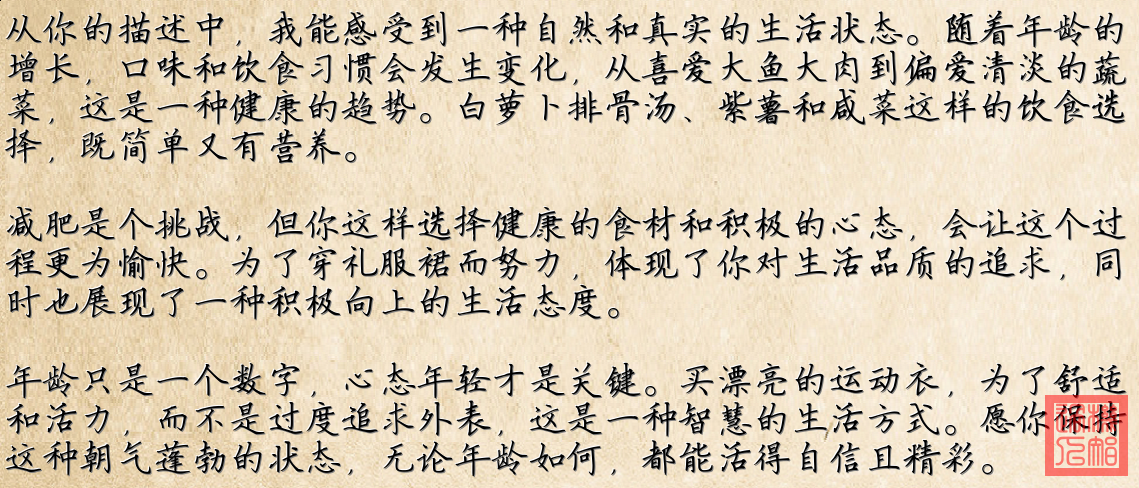 从你的描述中，我能感受到一种自然和真实的生活状态。随着年龄的
增长，口味和饮食习惯会发生变化，从喜爱大鱼大肉到偏爱清淡的蔬
菜，这是一种健康的趋势。白萝卜排骨汤、紫薯和咸菜这样的饮食选
择，既简单又有营养。
减肥是个挑战，但你这样选择健康的食材和积极的心态，会让这个过
程更为愉快。为了穿礼服裙而努力，体现了你对生活品质的追求，同
时也展现了一种积极向上的生活态度。
年龄只是一个数字，心态年轻才是关键。买漂亮的运动衣，为了舒适
和活力，而不是过度追求外表，这是一种智慧的生活方式。愿你保持
这种朝气蓬勃的状态，无论年龄如何，都能活得自信且精彩。